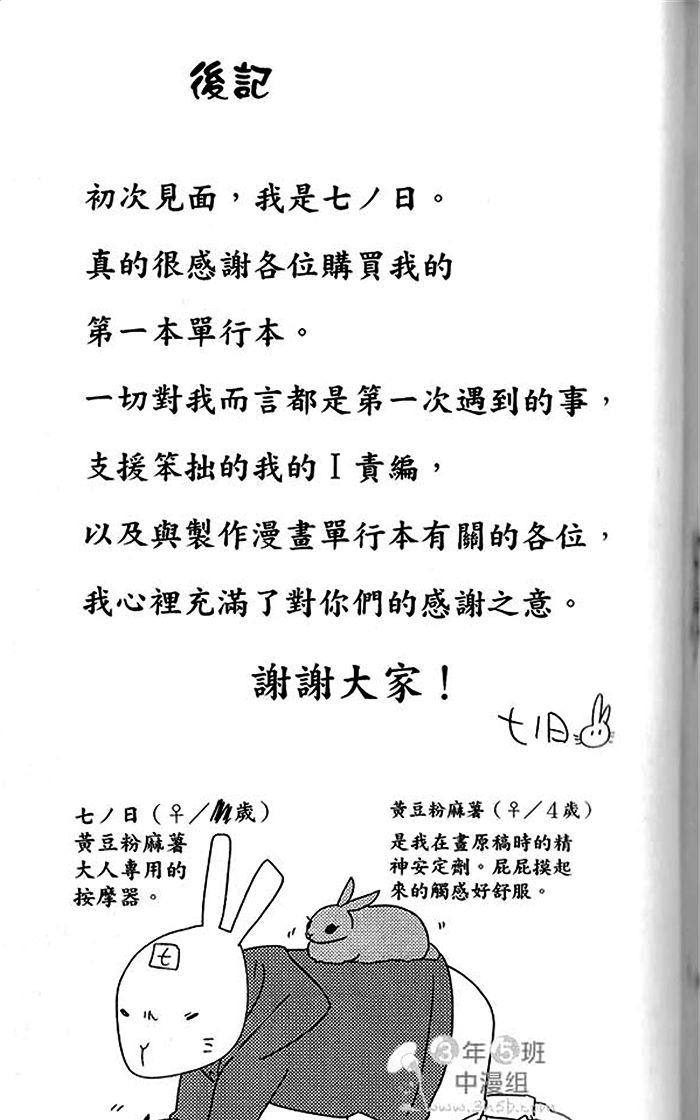 後記
初次見面，我是七ノ日。
真的很感謝各位購買我的
第一本單行本。
一切對我而言都是第一次遇到的事，
支援笨拙的我的I責編，
以及與製作漫畫單行本有關的各位，
我心裡充滿了對你們的感謝之意。
謝謝大家！
七ノ日
七ノ日（♀／歲）
黃豆粉麻薯
大人專用的
按摩器。
黃豆粉麻薯（♀／4歲）
是我在畫原稿時的精
神安定劑。屁屁摸起
來的觸感好舒服。
七
3年5班
中漫组
www.3n5b.com